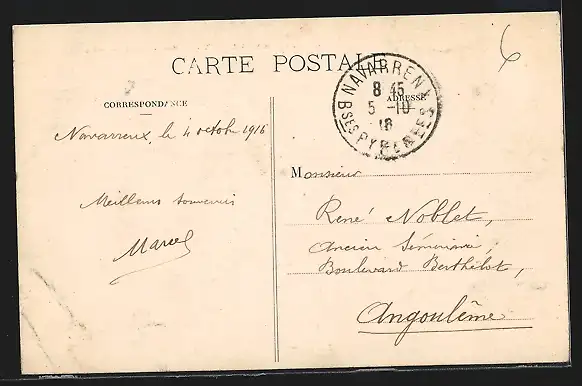 CARTE POSTALE
CORRESPONDANCE
ADRESSE
NAVARRENX
8 45
5 -10
16
BSES PYRENEES
6
Navarrenx, le 4 octobre 1916
Meilleurs souvenirs
Marcel
Monsieur
René Noblet,
Ancien Séminaire,
Boulevard Berthelot,
Angoulême